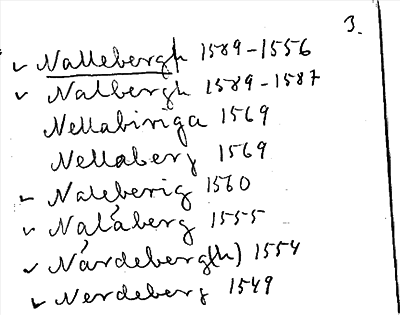 3.
✓ Nallebergh 1589-1556
✓ Nalbergh 1589-1587
Nellabiriga 1569
Nellaberg 1569
✓ Naleberig 1560
✓ Nalaberg 1555
✓ Nårdeberg(h) 1554
✓ Nerdeberg 1549